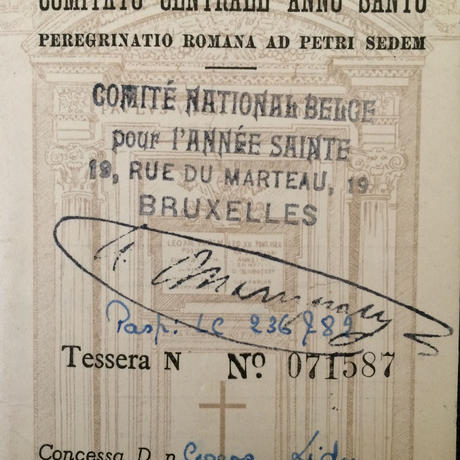 COMITATO CENTRALE ANNO SANTO
PEREGRINATIO ROMANA AD PETRI SEDEM
COMITÉ NATIONAL BELGE
pour l'ANNÉE SAINTE
19, RUE DU MARTEAU, 19
BRUXELLES
Pasp: LC 236789
Tessera N Nº 071587
Concessa D n